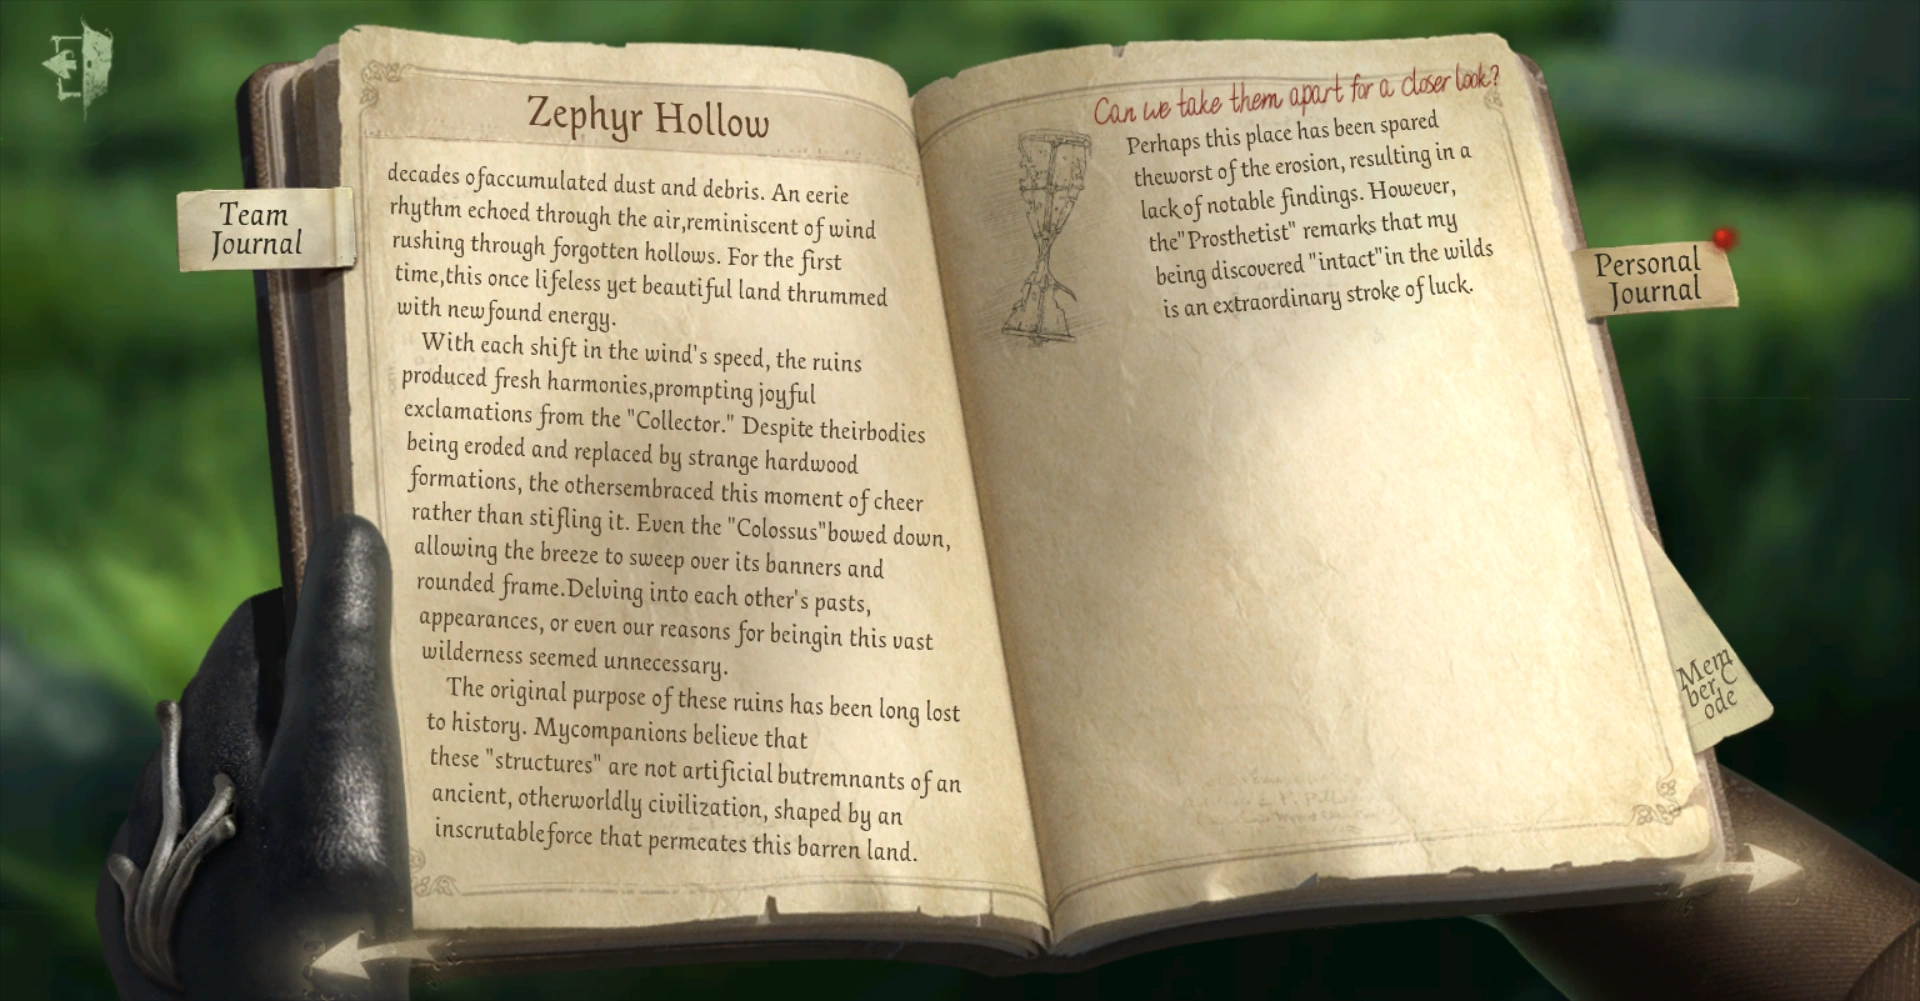 Zephyr Hollow
Team
Journal
decades ofaccumulated dust and debris. An eerie
rhythm echoed through the air,reminiscent of wind
rushing through forgotten hollows. For the first
time,this once lifeless yet beautiful land thrummed
with newfound energy.
With each shift in the wind's speed, the ruins
produced fresh harmonies,prompting joyful
exclamations from the "Collector." Despite theirbodies
being eroded and replaced by strange hardwood
formations, the othersembraced this moment of cheer
rather than stifling it. Even the "Colossus"bowed down,
allowing the breeze to sweep over its banners and
rounded frame.Delving into each other's pasts,
appearances, or even our reasons for beingin this vast
wilderness seemed unnecessary.
The original purpose of these ruins has been long lost
to history. Mycompanions believe that
these "structures" are not artificial butremnants of an
ancient, otherworldly civilization, shaped by an
inscrutableforce that permeates this barren land.
Can we take them apart for a closer look?
Perhaps this place has been spared
theworst of the erosion, resulting in a
lack of notable findings. However,
the"Prosthetist" remarks that my
being discovered "intact"in the wilds
is an extraordinary stroke of luck.
Personal
Journal
Mem
ber C
ode